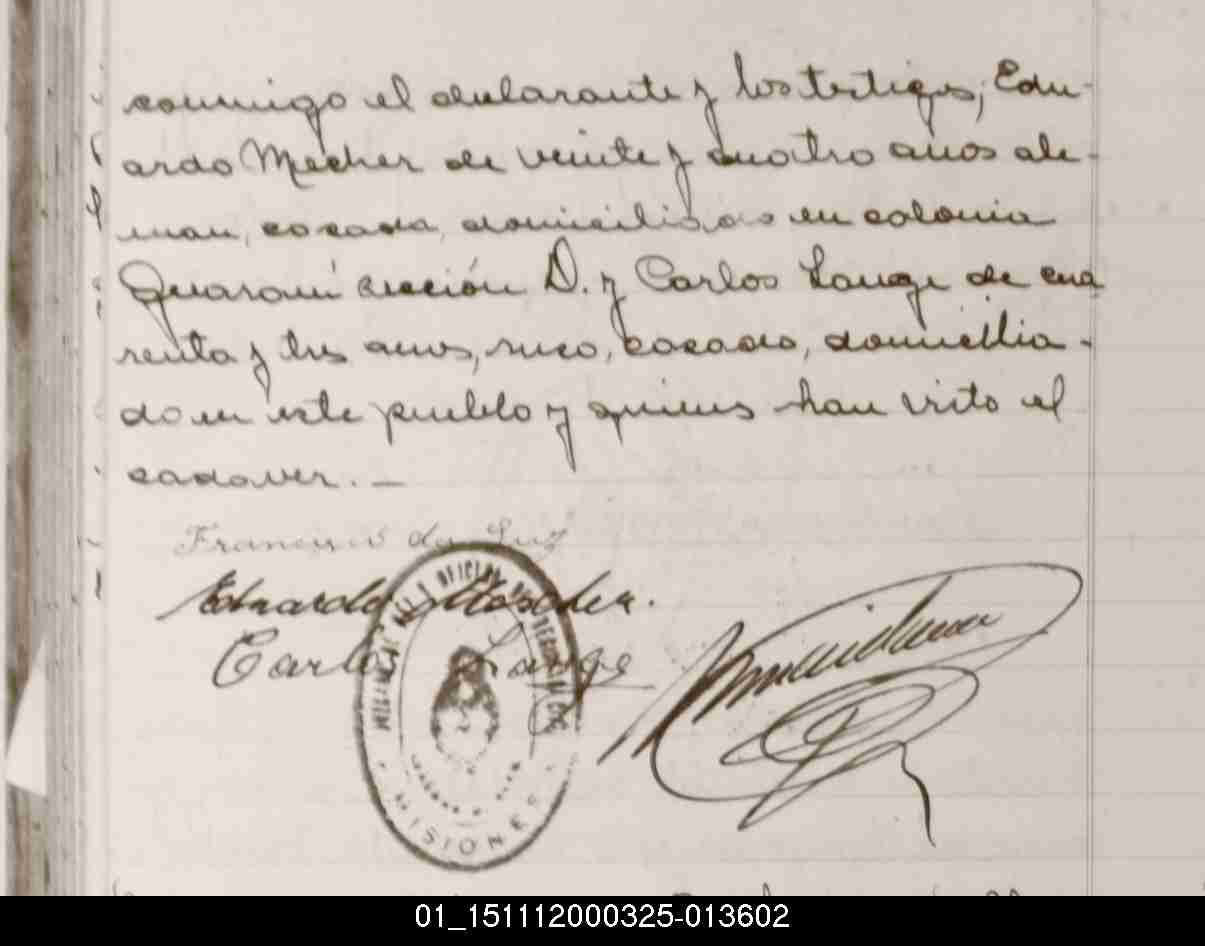 conmigo el declarante y los testigos; Edu-
ardo Mecher de veinte y cuatro años ale-
man, casado, domiciliado en colonia
Guaraní sección D. y Carlos Lange de cua
renta y tres años, suco, casado, domicilia-
do en este pueblo y quienes han visto el
cadaver. —
Francisco da Luz
Eduardo Möscher.
Carlos Lange
OFICIAL
MISIONES
01_151112000325-013602